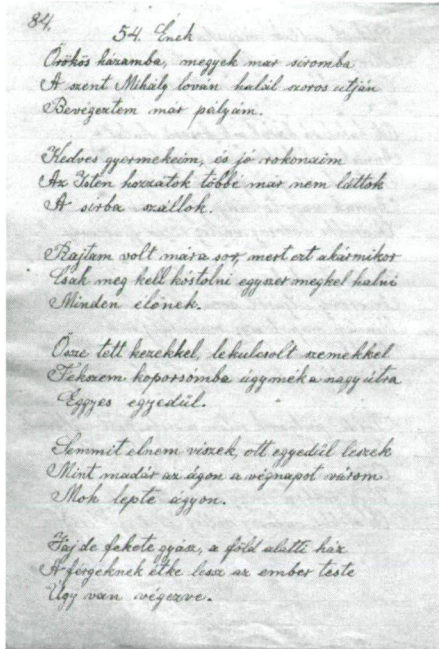 84.
54. Ének
Örökös házamba, megyek mar siromba
A szent Mihály lován halál szoros útján
Bevégeztem már pályám.
Kedves gyermekeim, és jó rokonaim
Az Isten hozzátok többé már nem láttok
A sirba szállok.
Rajtam volt mára sor, mert ezt akármikor
Csak meg kell kóstolni egyszer megkel halni
Minden élőnek.
Össze tett kezekkel, lekulcsolt szemekkel
Fekszem koporsómba úgymék a nagy útra
Eggyes egyedül.
Semmit elnem viszek, ott egyedül leszek
Mint madár az ágon a végnapot várom
Moh lepte ágyon.
Jaj de fekete gyász, a föld alatti ház
A férgeknek étke lesz az ember teste
Úgy van végezve.